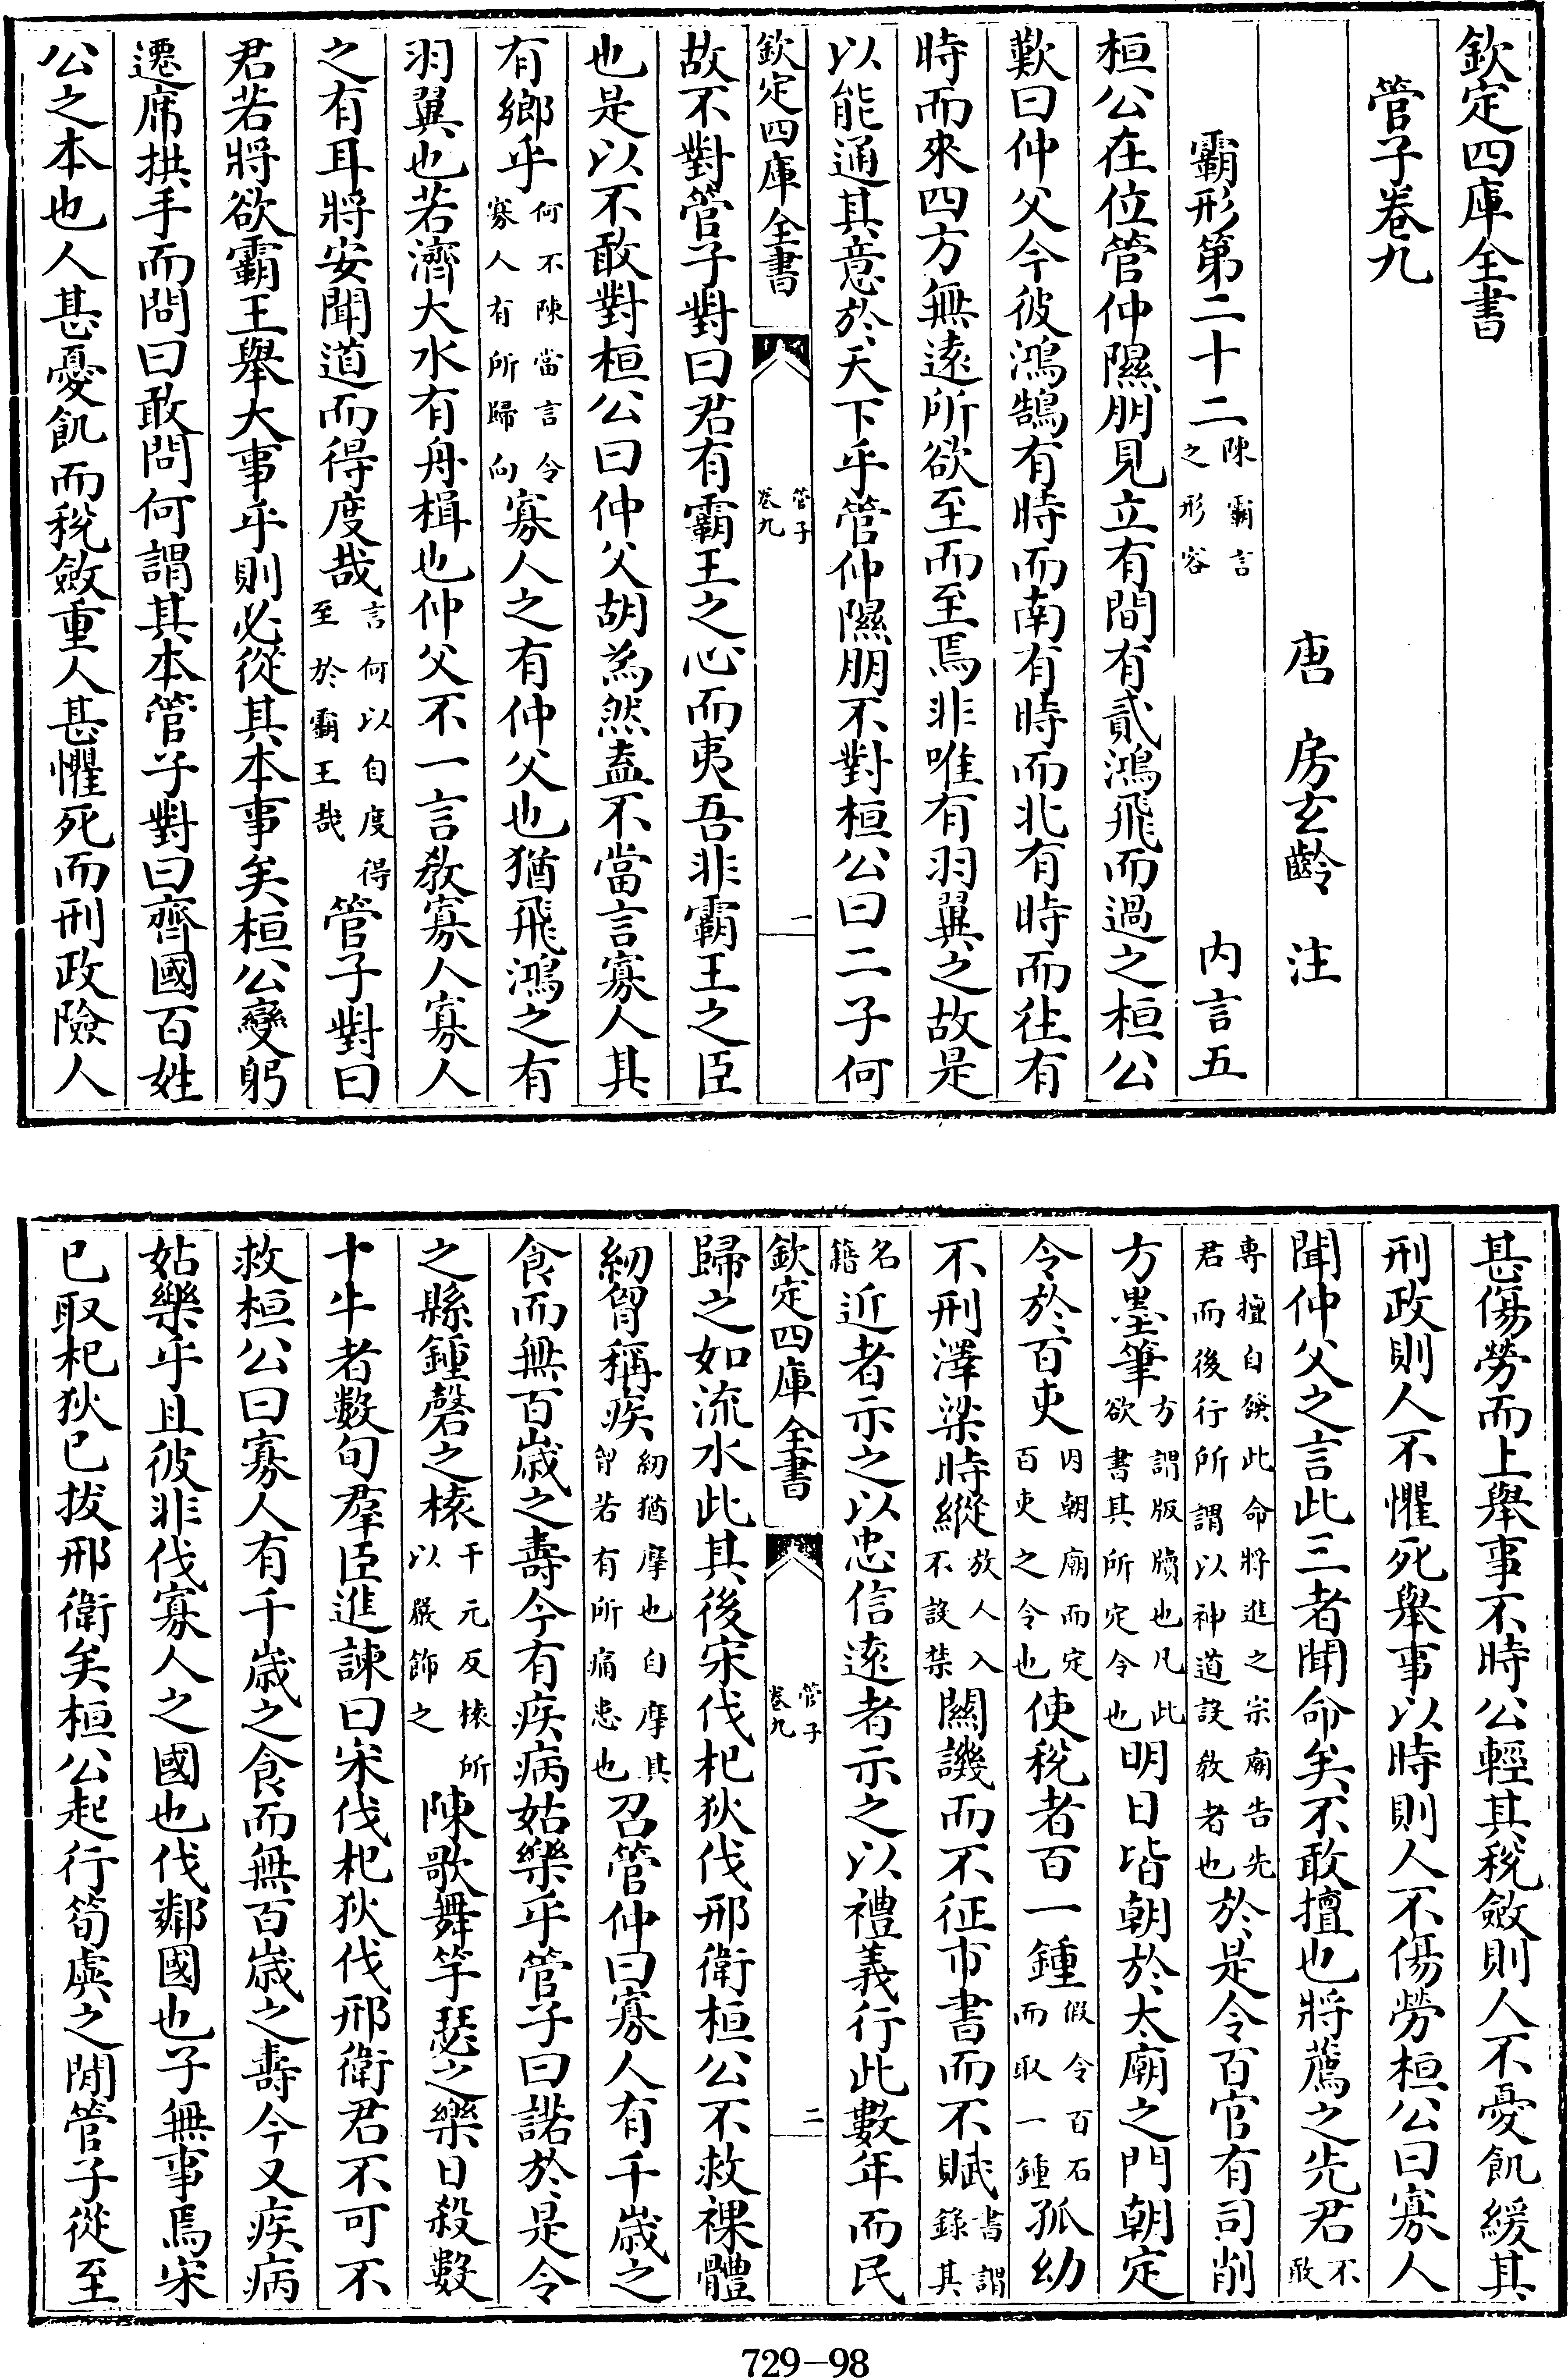 欽定四庫全書
管子卷九
唐　房玄齡　注
霸形第二十二陳霸言之形容　内言五
桓公在位管仲隰朋見立有間有貳鴻飛而過之桓公
歎曰仲父今彼鴻鵠有時而南有時而北有時而往有
時而來四方無遠所欲至而至焉非唯有羽翼之故是
以能通其意於天下乎管仲隰朋不對桓公曰二子何
欽定四庫全書　管子卷九　一
故不對管子對曰君有霸王之心而夷吾非霸王之臣
也是以不敢對桓公曰仲父胡為然盍不當言寡人其
有鄉乎何不陳當言令寡人有所歸向寡人之有仲父也猶飛鴻之有
羽翼也若濟大水有舟楫也仲父不一言教寡人寡人
之有耳將安聞道而得度哉言何以自度得至於霸王哉管子對曰
君若將欲霸王舉大事乎則必從其本事矣桓公變躬
遷席拱手而問曰敢問何謂其本管子對曰齊國百姓
公之本也人甚憂飢而稅斂重人甚懼死而刑政險人
甚傷勞而上舉事不時公輕其稅斂則人不憂飢緩其
刑政則人不懼死舉事以時則人不傷勞桓公曰寡人
聞仲父之言此三者聞命矣不敢擅也將薦之先君不敢
專擅自發此命將進之宗廟告先君而後行所謂以神道設教者也於是令百官有司削
方墨筆方謂版牘也凡此欲書其所定令也明日皆朝於太廟之門朝定
令於百吏因朝廟而定百吏之令也使稅者百一鍾假令百石而取一鍾孤幼
不刑澤梁時縱放人入不設禁關譏而不征市書而不賦書謂錄其
名籍近者示之以忠信遠者示之以禮義行此數年而民
欽定四庫全書　管子卷九　二
歸之如流水此其後宋伐杞狄伐邢衛桓公不救裸體
紉胷稱疾紉猶摩也自摩其胷若有所痛患也召管仲曰寡人有千歲之
食而無百歲之壽今有疾病姑樂乎管子曰諾於是令
之縣鍾磬之榬干元反榬所以嚴飾之陳歌舞竽瑟之樂日殺數
十牛者數旬羣臣進諫曰宋伐杞狄伐邢衛君不可不
救桓公曰寡人有千歲之食而無百歲之壽今又疾病
姑樂乎且彼非伐寡人之國也伐鄰國也子無事焉宋
已取杞狄已拔邢衛矣桓公起行筍虡之閒管子從至
729-98